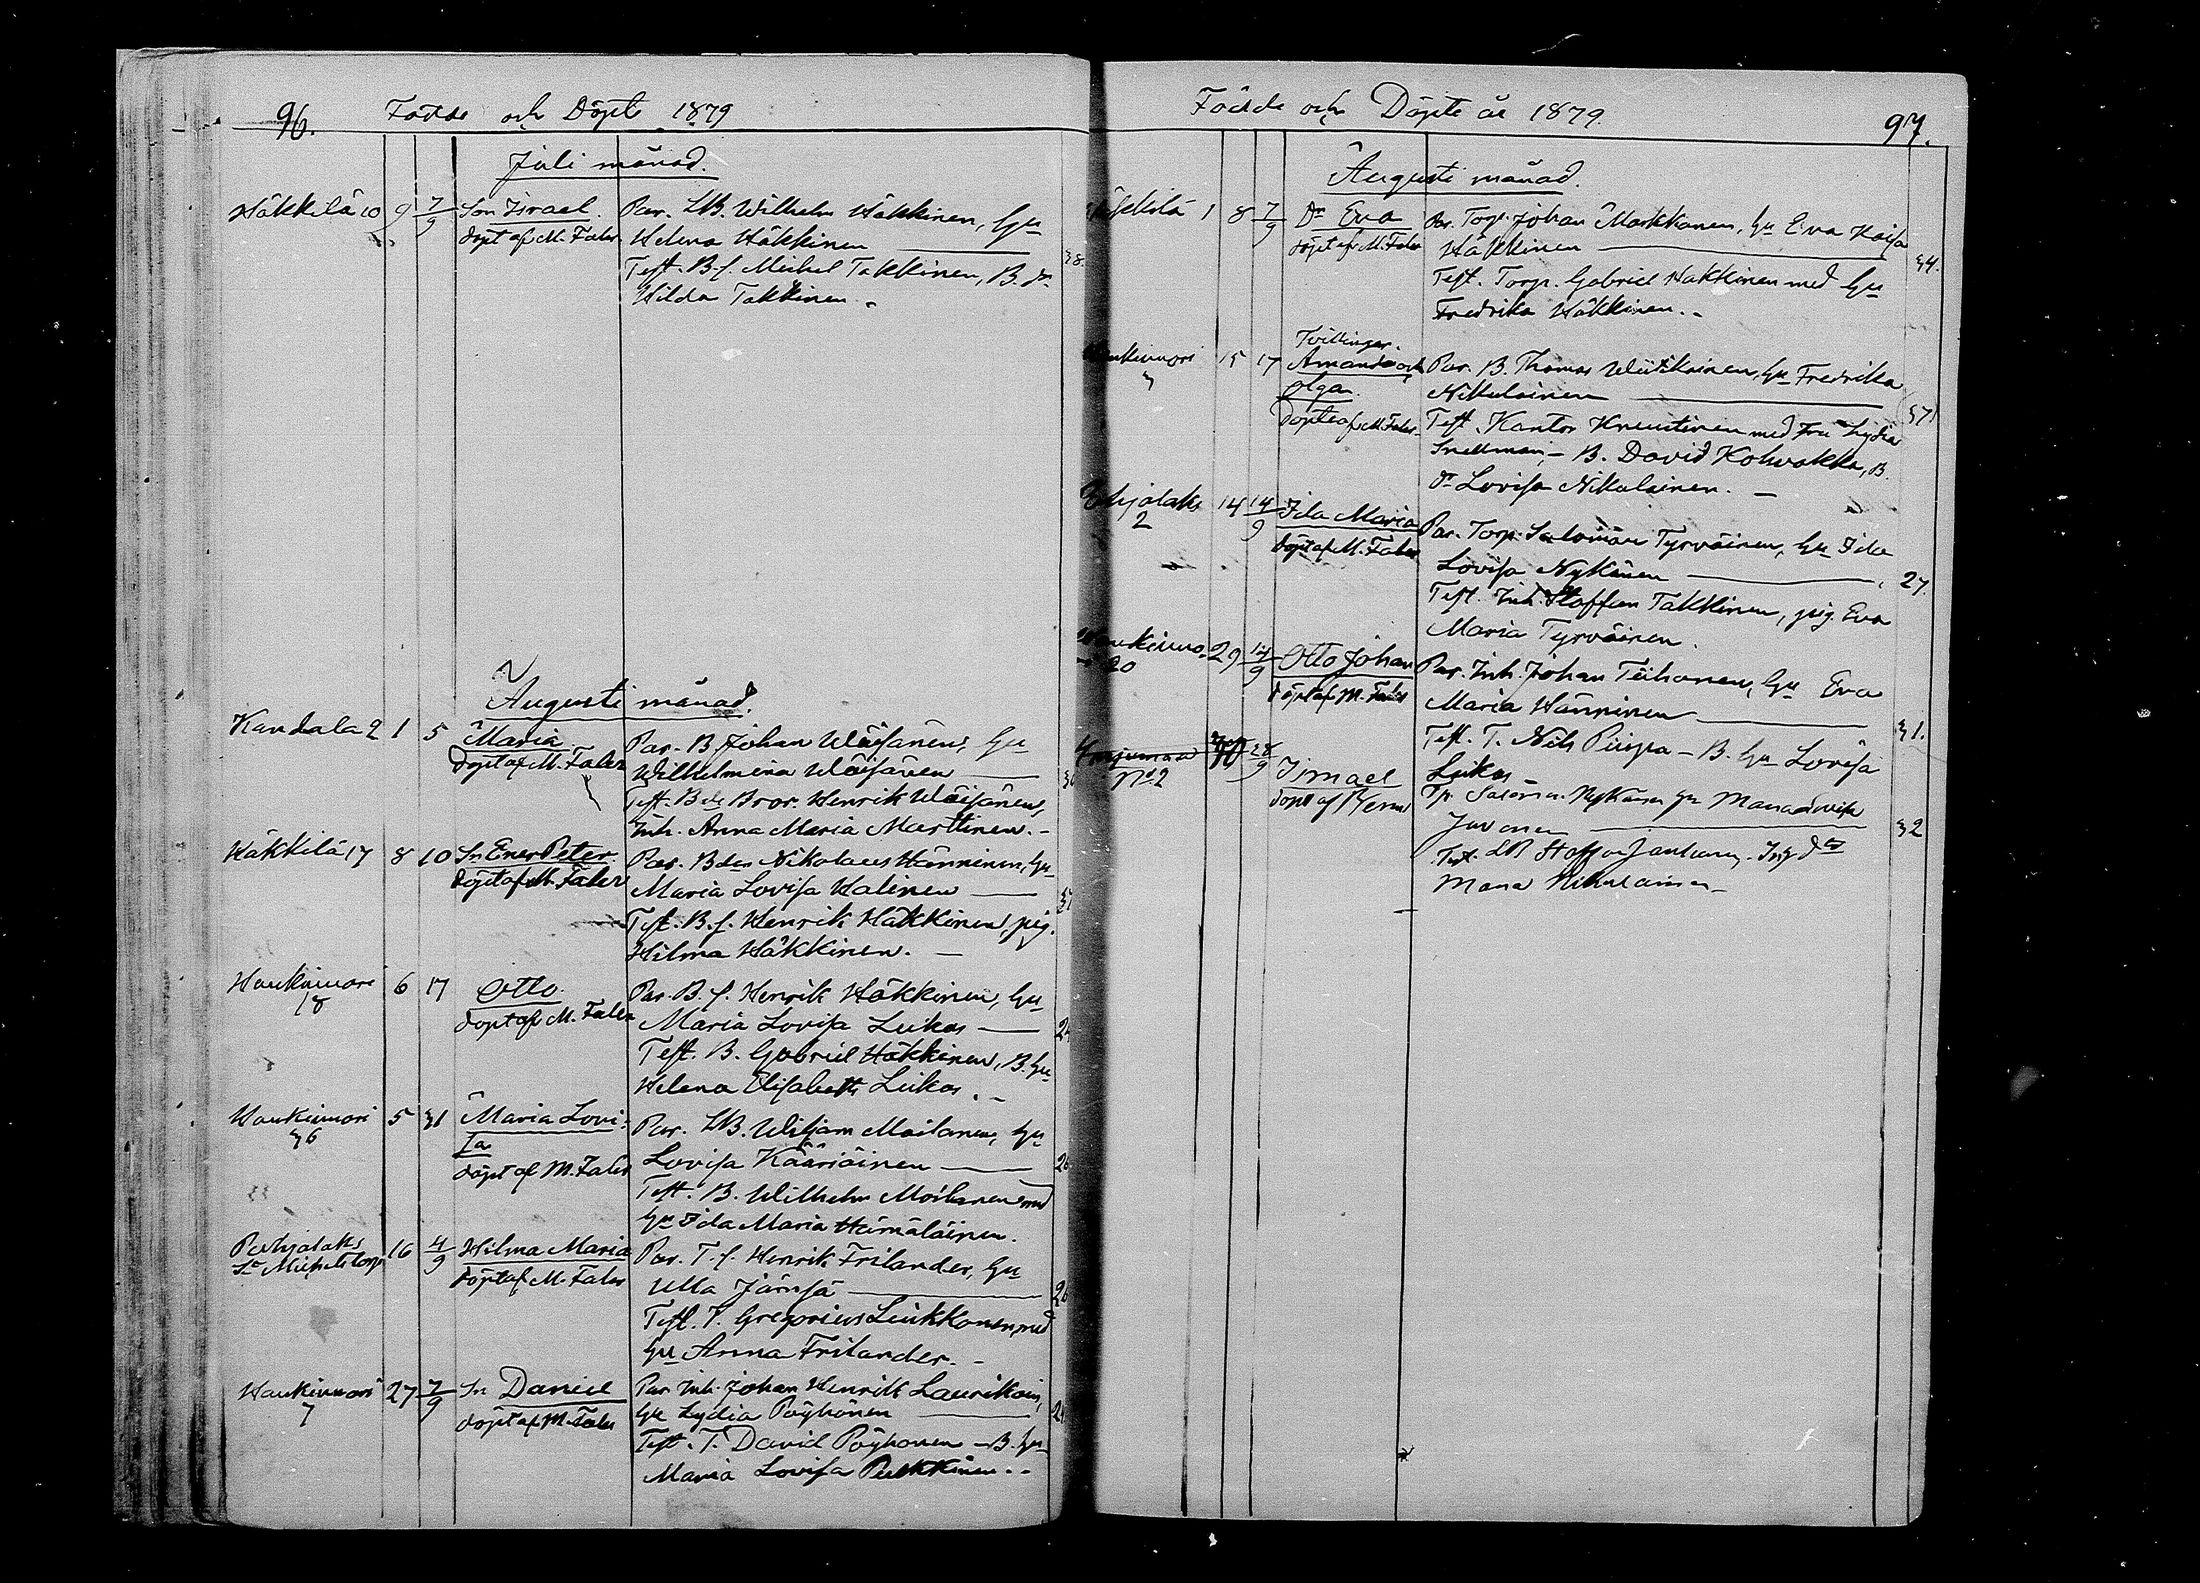 96. Födde och Döpte 1879
Juli månad.
Häkkilä 10 9 7/9 Son Israel. Par. LB. Wilhelm Häkkinen, hu
döpt af M. Faler Helena Häkkinen — 38.
Test. B.s. Michel Takkinen, B. dr
Hilda Takkinen.-
Augusti månad.
Kandala 2 1 5 Maria Par. B. Johan Wäisänen, hu
döpt af M. Faler Wilhelmina Wäisänen —
Test. Bde Bror. Henrik Wäisänen,
Inh. Anna Maria Marttinen.-
Häkkilä 17 8 10 Sn Ener Peter. Par. Bden Nikolaus Hänninen, hu
döpt af M. Faler Maria Lovisa Halinen —
Test. B.s. Henrik Häkkinen, pig.
Hilma Häkkinen. -
Haukivuori 6 17 Otto Par. B. s. Henrik Häkkinen, hu
18 döpt af M. Faler Maria Lovisa Leikas —
Test. B. Gabriel Häkkinen, B. hu
Helena Elisabeth Leikas. -
Haukivuori 5 31 Maria Lovi- Par. LB. Wiljam Moilanen, hu
36 sa Lovisa Kääriäinen —
döpt af M. Faler Test. B. Wilhelm Moilanen med
hu Ida Maria Hämäläinen.
Pohjalaks 16 4/9 Hilma Maria Par. T. s. Henrik Frilander, hu
St Michels torp döpt af M. Faler Ulla Jämsä — 26
Test. T. Gregorius Liukkonen med
hu Anna Frilander. -
Haukivuori 27 7/9 Sn Daniel Par. Inh. Johan Henrik Laurikain,
7 döpt af M. Faler hu Lydia Pöyhönen —
Test. T. David Pöyhonen - B. hu
Maria Lovisa Pulkkinen.-
Födde och Döpte år 1879. 97.
Augusti månad.
Häkkilä 1 8 7/9 Dr Eva Par. Torp. Johan Markkanen, hu Eva Kaisa
döpt af M. Faler Häkkinen — 34.
Test. Torp. Gabriel Häkkinen med hu
Fredrika Häkkinen.-
Tvillingar.
Haukivuori 15 17 Amanda och Par. B. Thomas Wiitikainen, hu Fredrika
3 Olga. Nikulainen — 37
döpte af M. Faler Test. Kantor Knuutinen med Fru Lydia
Snellman, - B. David Kohvakka, B.
dr Lovisa Nikulainen. -
Pohjalaks 14 14/9 Ida Maria Par. Torp. Salomon Tyrväinen, hu Ida
2 döpt af M. Faler Lovisa Nykänen — 27.
Test. Inh. Staffan Takkinen, pig. Eva
Maria Tyrväinen.
Haukivuo- 29 14/9 Otto Johan Par. Inh. Johan Tiihonen, hu Eva
20 döpt af M. Faler Maria Hänninen — 31.
Test. T. Nils Piispa - B. hu Lovisa
Leikas -
No 2 28/9 Ismael Tp. Salomon Nykänen hu Maria Lovisa
döpt af Juvonen — 32
Test. LB Staffan Jantunen. Inh dr
Maria Nikulainen -